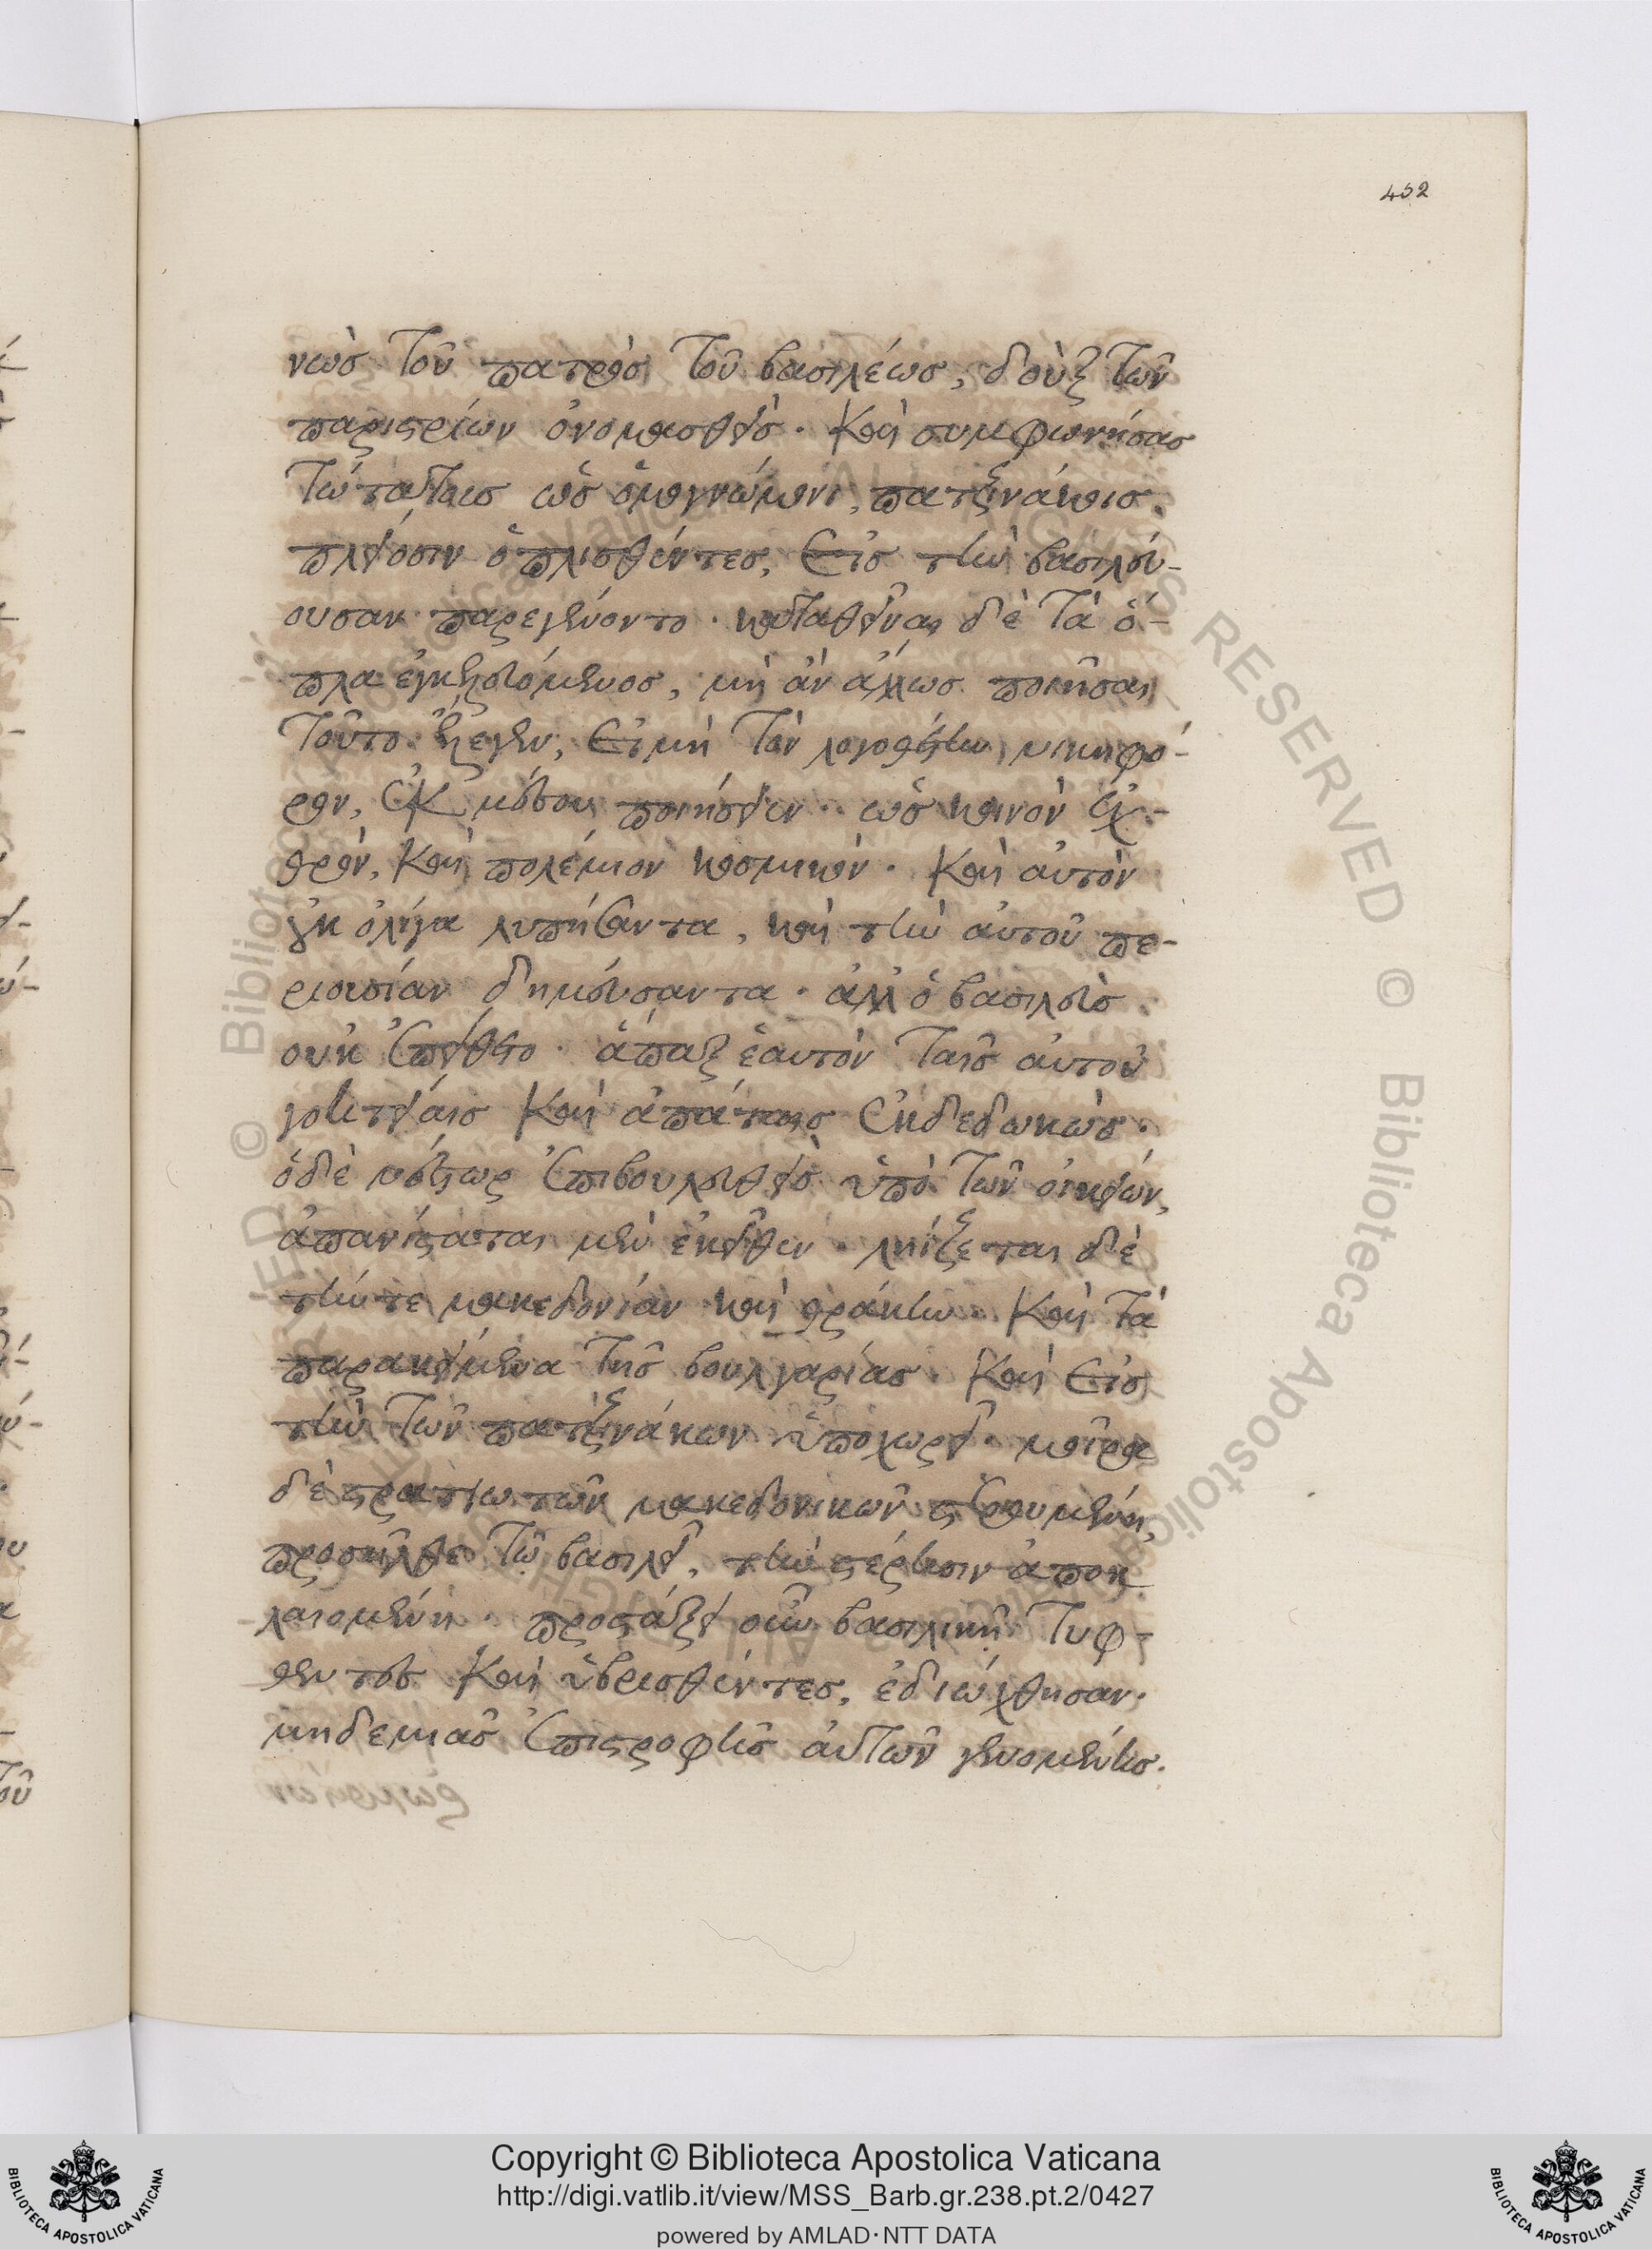 452
νῶς τοῦ πατρὸς τοῦ βασιλέως, δοὺξ τῶν
παριστρίων ὀνομασθεὶς. καὶ συμφωνήσας
τῶ τατοὺς ὡς ὁμογνώμονι, πατζινάκοις.
πλείοσιν ὁπλισθέντες, εἰς τὴν βασιλεύ-
ουσαν παρεγένοντο. καταθεῖναι δὲ τὰ ὅ-
πλα ἐγκελευόμενος, μὴ ἂν ἄλλως ποιῆσαι
τοῦτο ἔλεγεν, εἰ μὴ τὸν λογοθέτην νικηφό-
ρον, ἐκ μέσου ποιήσειεν. ὡς κοινὸν ἐχ-
θρὸν, καὶ πολέμιον κοσμικόν. καὶ αὐτὸν
οὐκ ὀλίγα λυπήσαντα, καὶ τὴν αὐτοῦ πε-
ριουσίαν δημεύσαντα. ἀλλ' ὁ βασιλεὺς
οὐκ ἐπείθετο. ἅπαξ ἑαυτὸν ταῖς αὐτοῦ
γοητείαις καὶ ἀπάταις ἐκδεδωκὼς.
ὁ δὲ νέστωρ ἐπιβουλευθεὶς ὑπὸ τῶν οἰκείων,
ἀπανίσταται μὲν ἐκεῖθεν. ληίζεται δὲ
τήν τε μακεδονίαν καὶ θράκην. καὶ τὰ
παρακείμενα τῆς βουλγαρίας. καὶ εἰς
τὴν τῶν πατζινάκων ὑποχωρεῖ. μοῖρα
δὲ στρατιωτῶν μακεδονικῶν στερουμένη,
προσῆλθε τῶ βασιλεῖ, τὴν στέρησιν ἀποκ
λαιομένη. προστάξει οὖν βασιλικῆ τυφ-
θέντες καὶ ὑβρισθέντες, ἐδιώχθησαν.
μηδεμιᾶς ἐπιστροφῆς αὐτῶν γενομένης.
Copyright © Biblioteca Apostolica Vaticana
http://digi.vatlib.it/view/MSS_Barb.gr.238.pt.2/0427
powered by AMLAD·NTT DATA
BIBLIOTECA APOSTOLICA VATICANA
BIBLIOTECA APOSTOLICA VATICANA